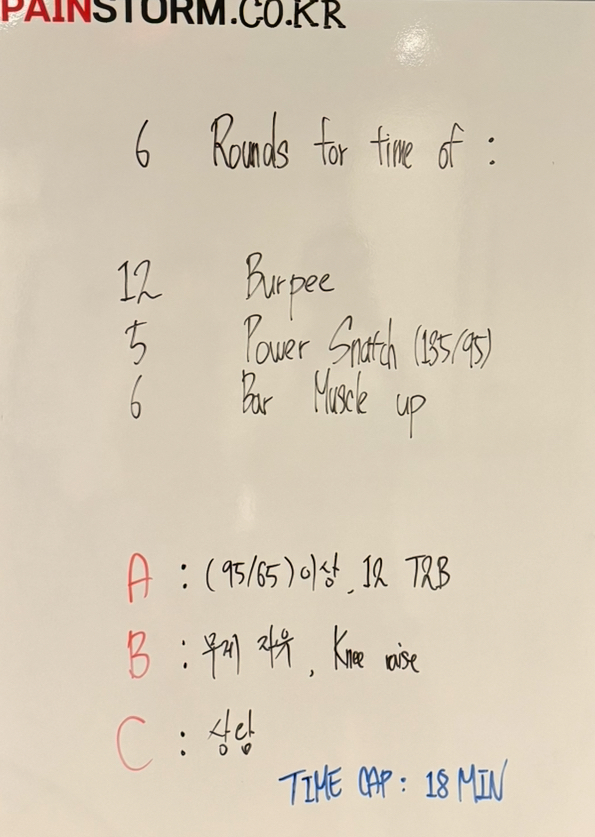 PAINSTORM.CO.KR
6 Rounds for time of :
12 Burpee
5 Power Snatch (135/95)
6 Bar Muscle up
A : (95/65)이상, 12 T2B
B : 무게 자유, Knee raise
C : 상담
TIME CAP : 18 MIN